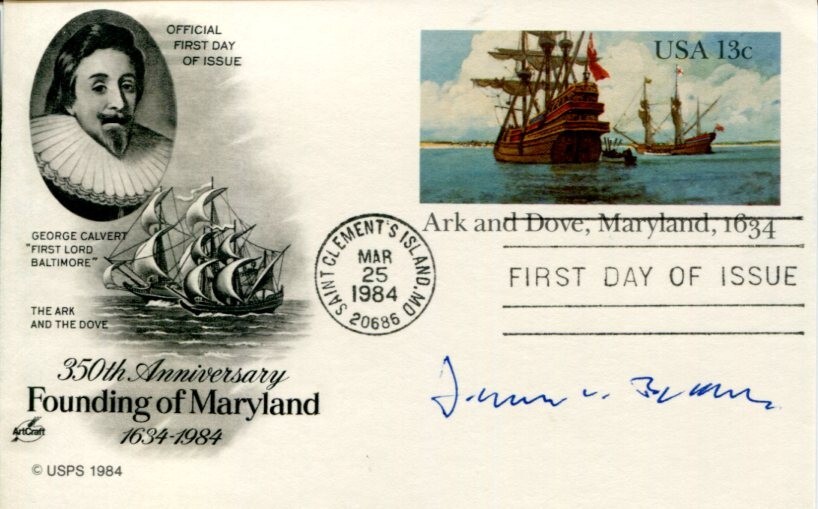 OFFICIAL
FIRST DAY
OF ISSUE
GEORGE CALVERT
"FIRST LORD
BALTIMORE"
THE ARK
AND THE DOVE
350th Anniversary
Founding of Maryland
1634-1984
ArtCraft
© USPS 1984
USA 13c
Ark and Dove, Maryland, 1634
SAINT CLEMENT'S ISLAND, MD
MAR
25
1984
20686
FIRST DAY OF ISSUE